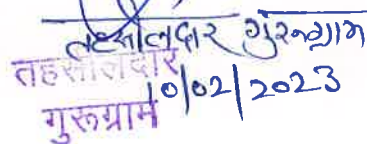 तहसीलदार गुरूग्राम
तहसीलदार
गुरूग्राम
10/02/2023